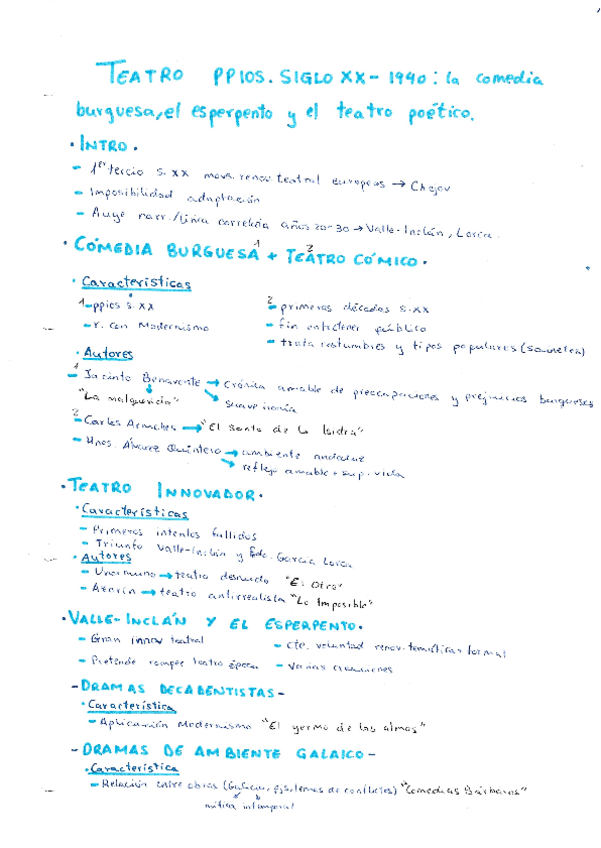 TEATRO PPIOS. SIGLO XX - 1940: la comedia
burguesa, el esperpento y el teatro poético.
· INTRO ·
- 1er tercio s. xx movs. renov. teatral europeos → Chejov
- Imposibilidad adaptación
- Auge narr./lírica años 20-30 → Valle-Inclán, Lorca.
· COMEDIA BURGUESA 1 + TEATRO CÓMICO 2 ·
· Características
1 - ppios s. xx
- r. con Modernismo
2 - primeras décadas s. xx
- fin entretener público
- trata costumbres y tipos populares (sainetes)
· Autores
1 - Jacinto Benavente → Crónica amable de preocupaciones y prejuicios burgueses
"La malquerida" suave ironía
2 - Carlos Arniches → "El santo de la Isidra"
- Hnos. Álvarez Quintero → ambiente andaluz
reflejo amable + sup. vida
· TEATRO INNOVADOR ·
· Características
- Primeros intentos fallidos
- Triunfo Valle-Inclán y Fdo. García Lorca
· Autores
- Unamuno → teatro desnudo "El Otro"
- Azorín → teatro antirrealista "Lo Imposible"
· VALLE-INCLÁN Y EL ESPERPENTO ·
- Gran innov teatral
- cte. voluntad renov. temática y formal
- Pretende romper teatro época
- Varias
- DRAMAS DECADENTISTAS -
· Característica
- Aplicación Modernismo "El yermo de las almas"
- DRAMAS DE AMBIENTE GALAICO -
· Característica
- Relación entre obras (Galicia, sistemas de conflictos) "Comedias Bárbaras"
mítica intemporal